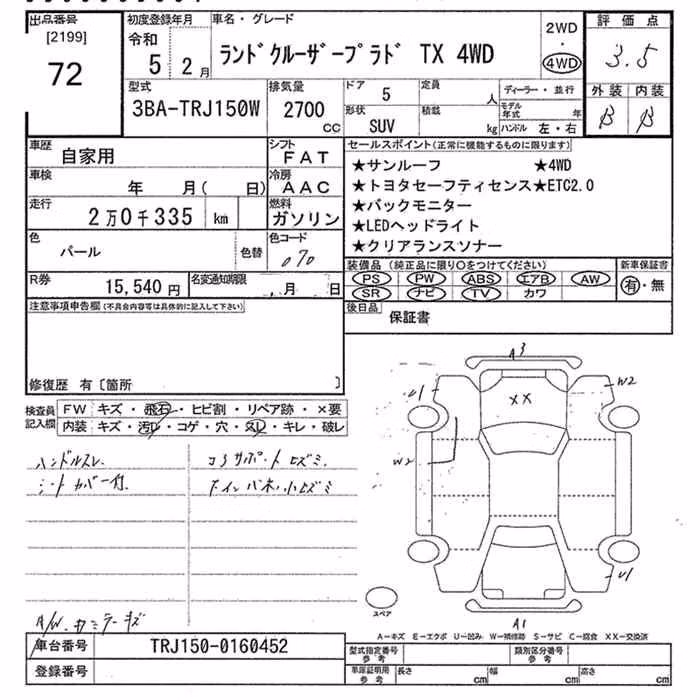 出品番号
[2199]
72
初度登録年月
令和
5 2月
車名・グレード
ランドクルーザープラド TX 4WD
2WD
・
4WD
評価点
3.5
外装 内装
B B
型式
3BA-TRJ150W
排気量
2700
cc
ドア
5
定員
人
形状
SUV
積載
kg
ディーラー・並行
モデル年式 年
ハンドル 左・右
車歴
自家用
シフト
FAT
車検
年 月( 日)
冷房
AAC
走行
2万0千335 km
燃料
ガソリン
色
パール
色替
色コード
070
R券
15,540 円
名変通知期限
月 日
セールスポイント(正常に機能するものに限ります)
★サンルーフ ★4WD
★トヨタセーフティセンス★ETC2.0
★バックモニター
★LEDヘッドライト
★クリアランスソナー
装備品 (純正品に限り○をつけてください)
PS PW ABS エアB AW
SR ナビ TV カワ
新車保証書
有・無
後日品
保証書
注意事項申告欄(不具合内容等は具体的に記入して下さい)
修復歴 有〔箇所 〕
検査員記入欄
FW キズ・飛石・ヒビ割・リペア跡・×要
内装 キズ・汚レ・コゲ・穴・スレ・キレ・破レ
ハンドルスレ
シートカバー付
コアサポートキズミ
A/W.カミラーキズ
A3
U1
W2
XX
W2
U1
A1
スペア
A−キズ E−エクボ U−凹み W−補修跡 S−サビ C−腐食 XX−交換済
車台番号
TRJ150-0160452
登録番号
型式指定番号
参考
類別区分番号
参考
車庫証明用
参考
長さ cm 幅 cm 高さ cm